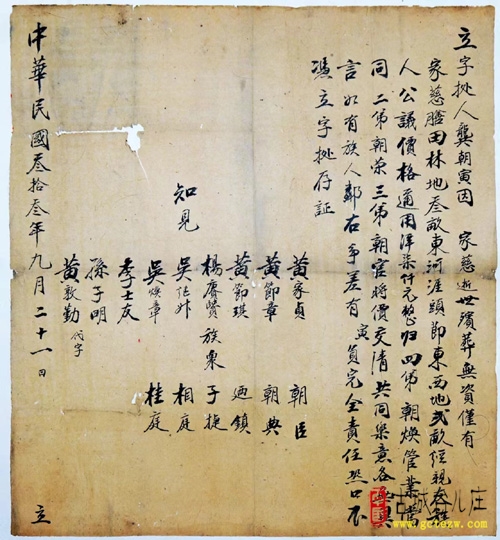 立字㧣人龔朝寅因　家慈逝世殯葬無資僅有
家慈膳田林地叁畝東河涯頭節東西地弍畝經親
人公議價格通用洋柒仟元整归四弟朝煥管業當
同二弟朝榮三弟朝官將價交清共同樂意各無異
言如有族人鄰右爭差有寅負完全責任恐口不
憑立字㧣存証
知見
黄家貞　朝臣
黄節章　朝典
黄節琪　廼鎮
楊賡贊　族眾　子捷
吳　相庭
吳煥章　桂庭
李士友
孫子明
黄敦勤代字
中華民國叁拾叁年九月二十一日　立
古城　兒庄
www.gctezw.com